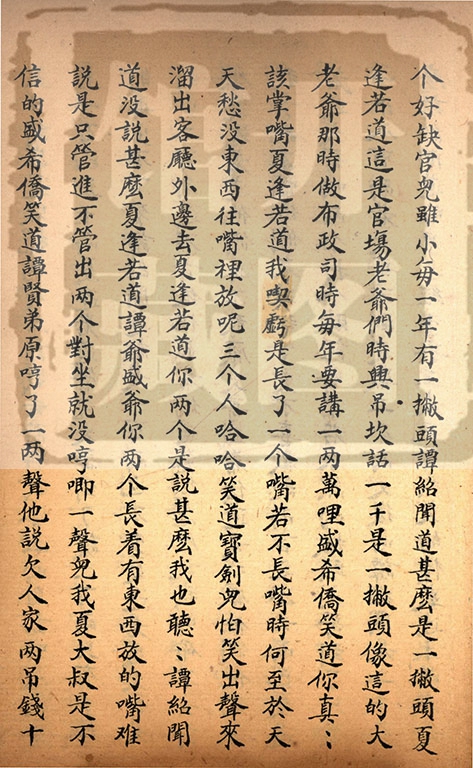 个好缺官兒雖小每一年有一撇頭譚紹聞道甚麼是一撇頭夏
逢若道這是官塲老爺們時興吊坎話一千是一撇頭像這的大
老爺那時做布政司時每年要講一兩萬哩盛希僑笑道你真：
該掌嘴夏逢若道我喫虧是長了一个嘴若不長嘴時何至於天
天愁没東西往嘴裡放呢三个人哈哈笑道寶劍兒怕笑出聲來
溜出客廳外邊去夏逢若道你兩个是說甚麼我也聽：譚紹聞
道没說甚麼夏逢若道譚爺盛爺你兩个長着有東西放的嘴难
說是只管進不管出兩个對坐就没哼唧一聲兒我夏大叔是不
信的盛希僑笑道譚賢弟原哼了一兩聲他說欠人家兩吊錢十